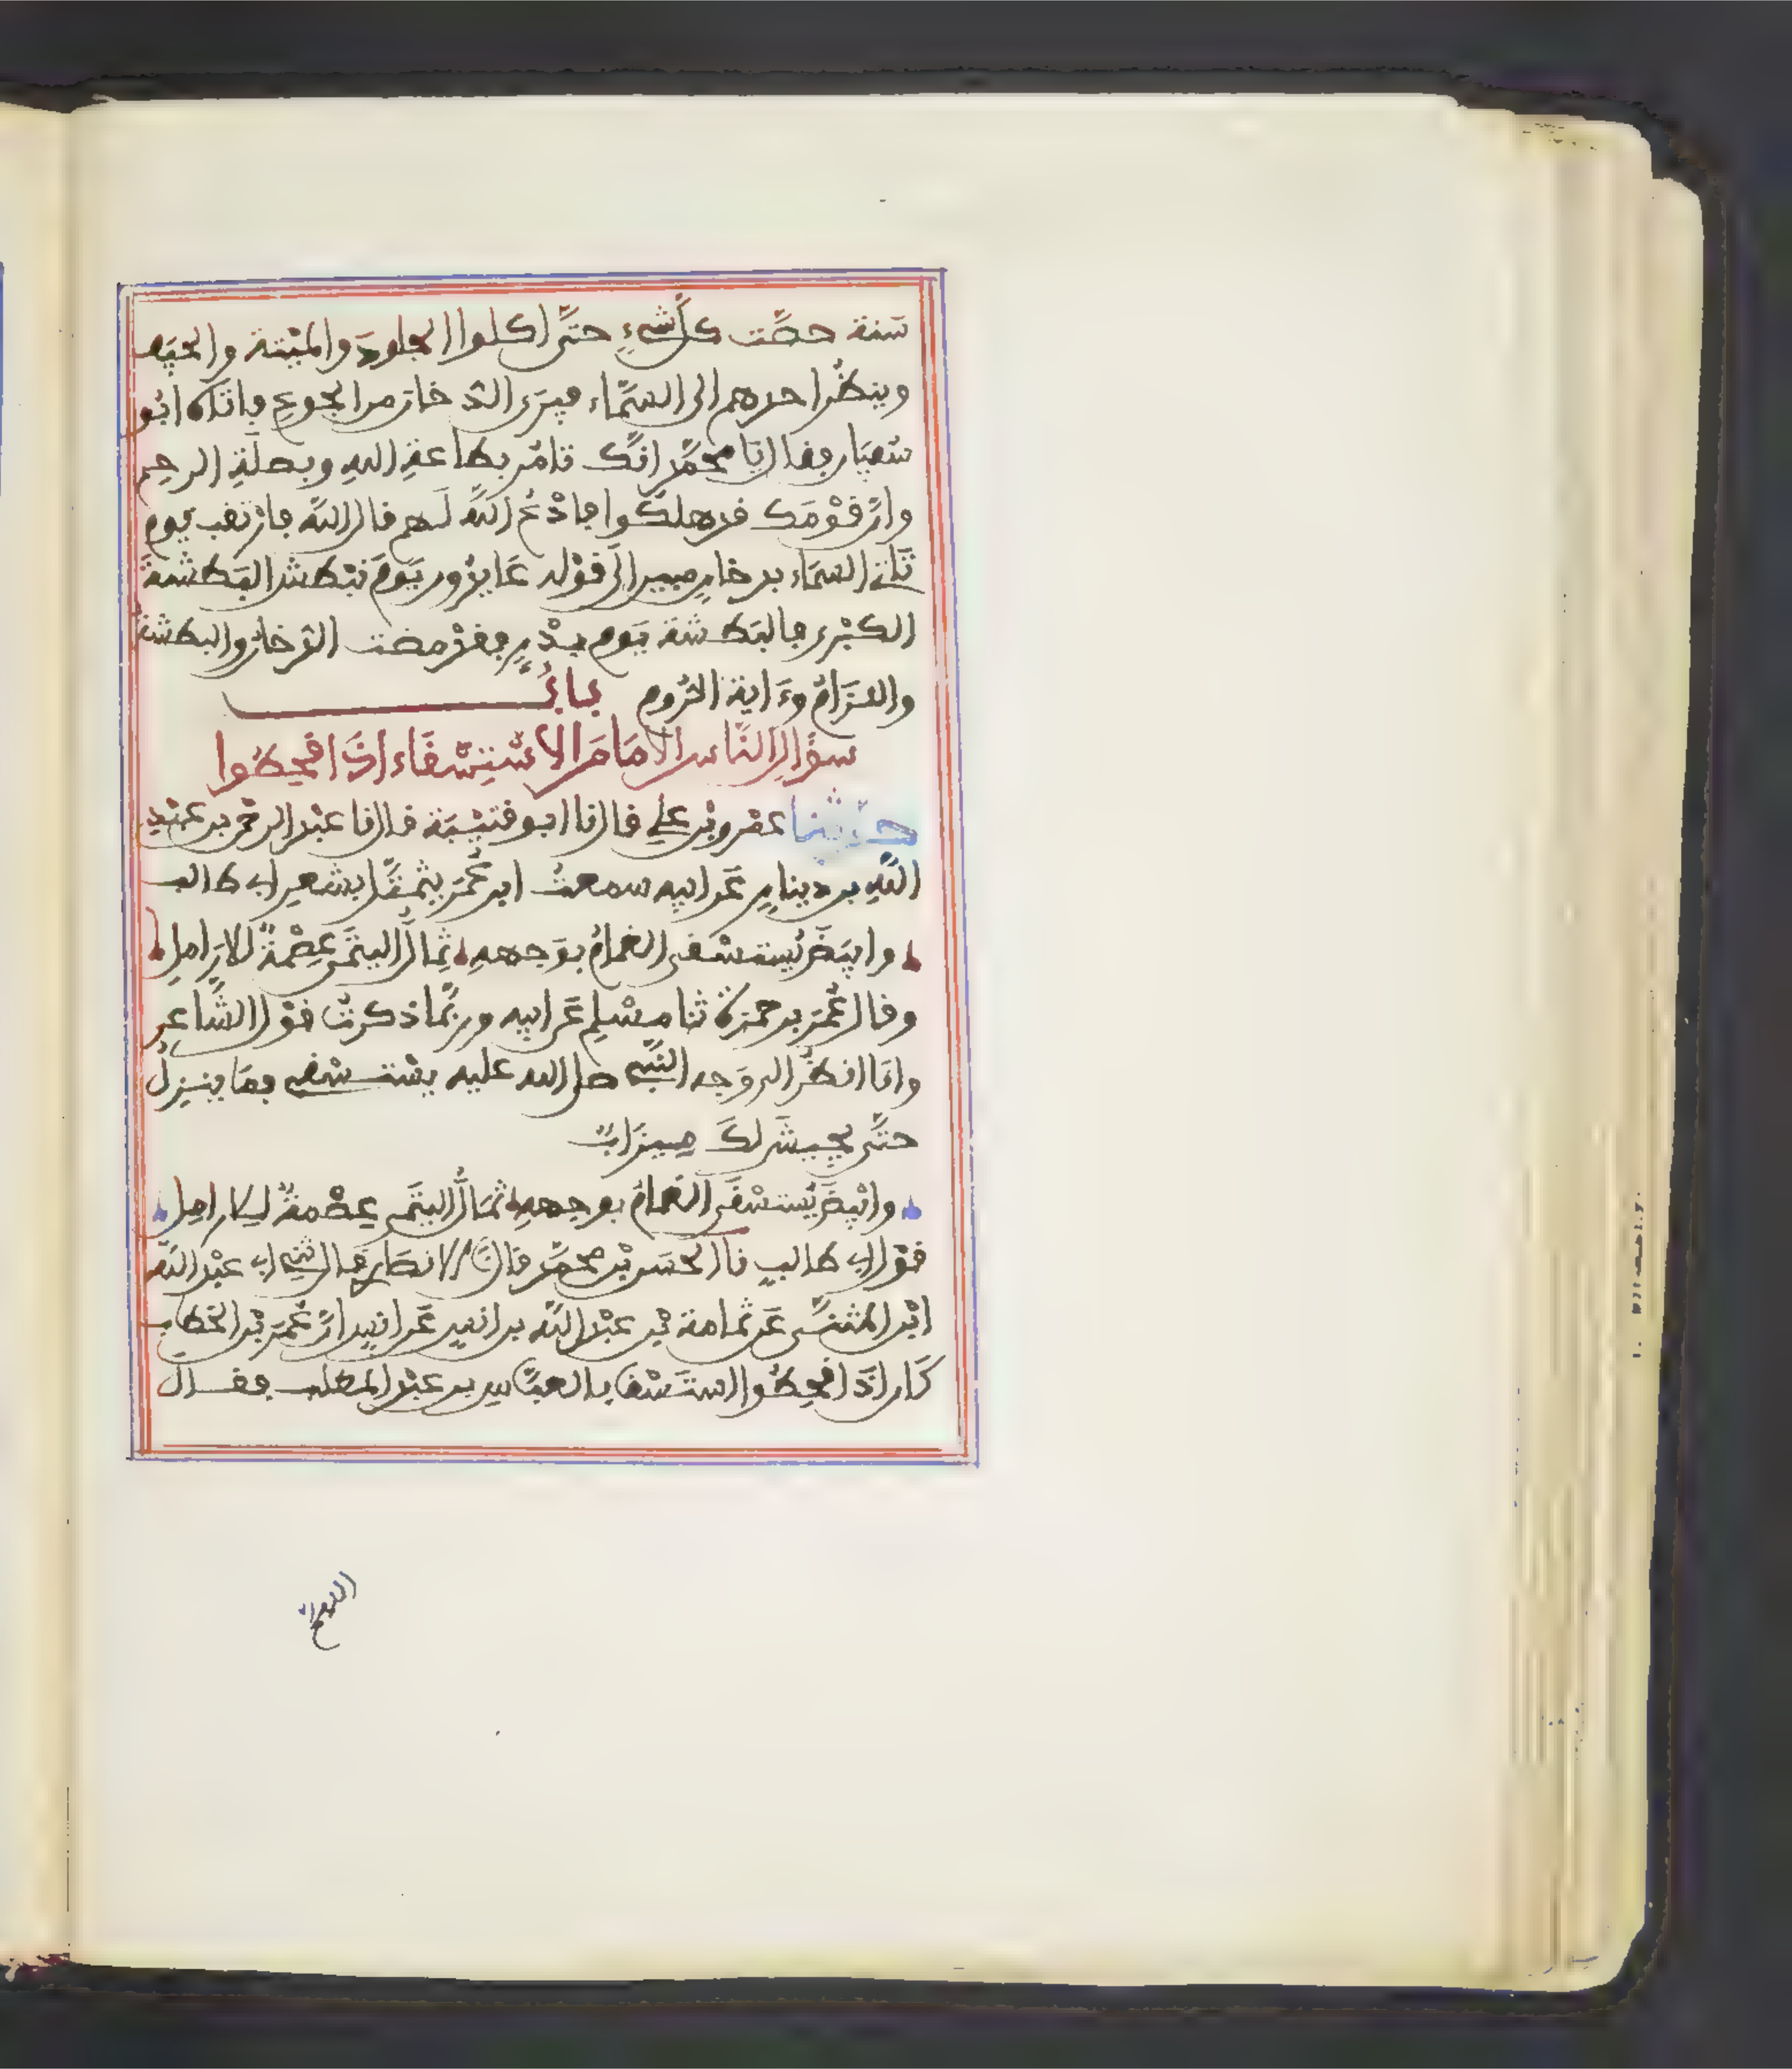 سَنة حصّت كلَّ شيءٍ حتَّى اكلوا الجلودَ والميْتة والجيَف
وينظُر احدهم الى السَّماء فيرَى الدخان من الجوع فاتَاه ابُو
سُفيَان فقال يا محمَّد انَّك تامُر بطاعةِ اللهِ وبصلَةِ الرحِم
وانَّ قوْمَك قد هلكُوا فادْعُ اللَّهَ لَهم قال اللَّه فارتقب يوم
تَاتي السمَاء بدخانٍ مبين الَى قوْله عَايدُون يَومَ نبْطش البَطشةَ
الكبْرى فالبَطشة يَوم بدْرٍ فقدْ مضت الدّخانُ والبطشةُ
واللزَامُ وءَاية الرُّوم بابُ
سؤال النَّاس الامَامَ الاسْتِسْقَاء اذَا قحطُوا
حدّثنا عمْرو بْن علي قال نا ابو قتيْبَة قال نا عبْد الرحمن بن عبْدِ
اللَّهِ بن دينارٍ عَن ابيه سمعتُ ابن عُمَر يتمثَّل بشعر ابي طالب
وابيَضَ يُستسْقى الغمامُ بوَجههِ ثِمالُ اليتَمى عِصْمةٌ للارَامِلِ
وقال عُمَر بن حمزة ثنا مسْلِم عَن ابيه ورُبَّما ذكرتُ قوْل الشَّاعِر
وانَا انظُر الى وَجه النَّبي صلى الله عليه يسْتسْقي فمَا ينزِلُ
حتَّى يجيشَ لكَ ميزَابٌ
وابْيضَ يُستسْقَى الغمامُ بوجههِ ثمَالُ اليتَمى عِصْمةٌ للارامِل
قوْل ابي طالبٍ نا الحسَن بْن محمَّد قال نا الانصَاري قال ثني ابي عبْد اللَّه
ابْن المثنَّى عَن ثمامة بْن عبْد اللَّه بن انسٍ عَن انسٍ انَّ عُمَر بْن الخطاب
كَان اذَا قحِطُوا استَسْقا بالعبَّاس بن عبْد المطلب فقال
اللهم انا